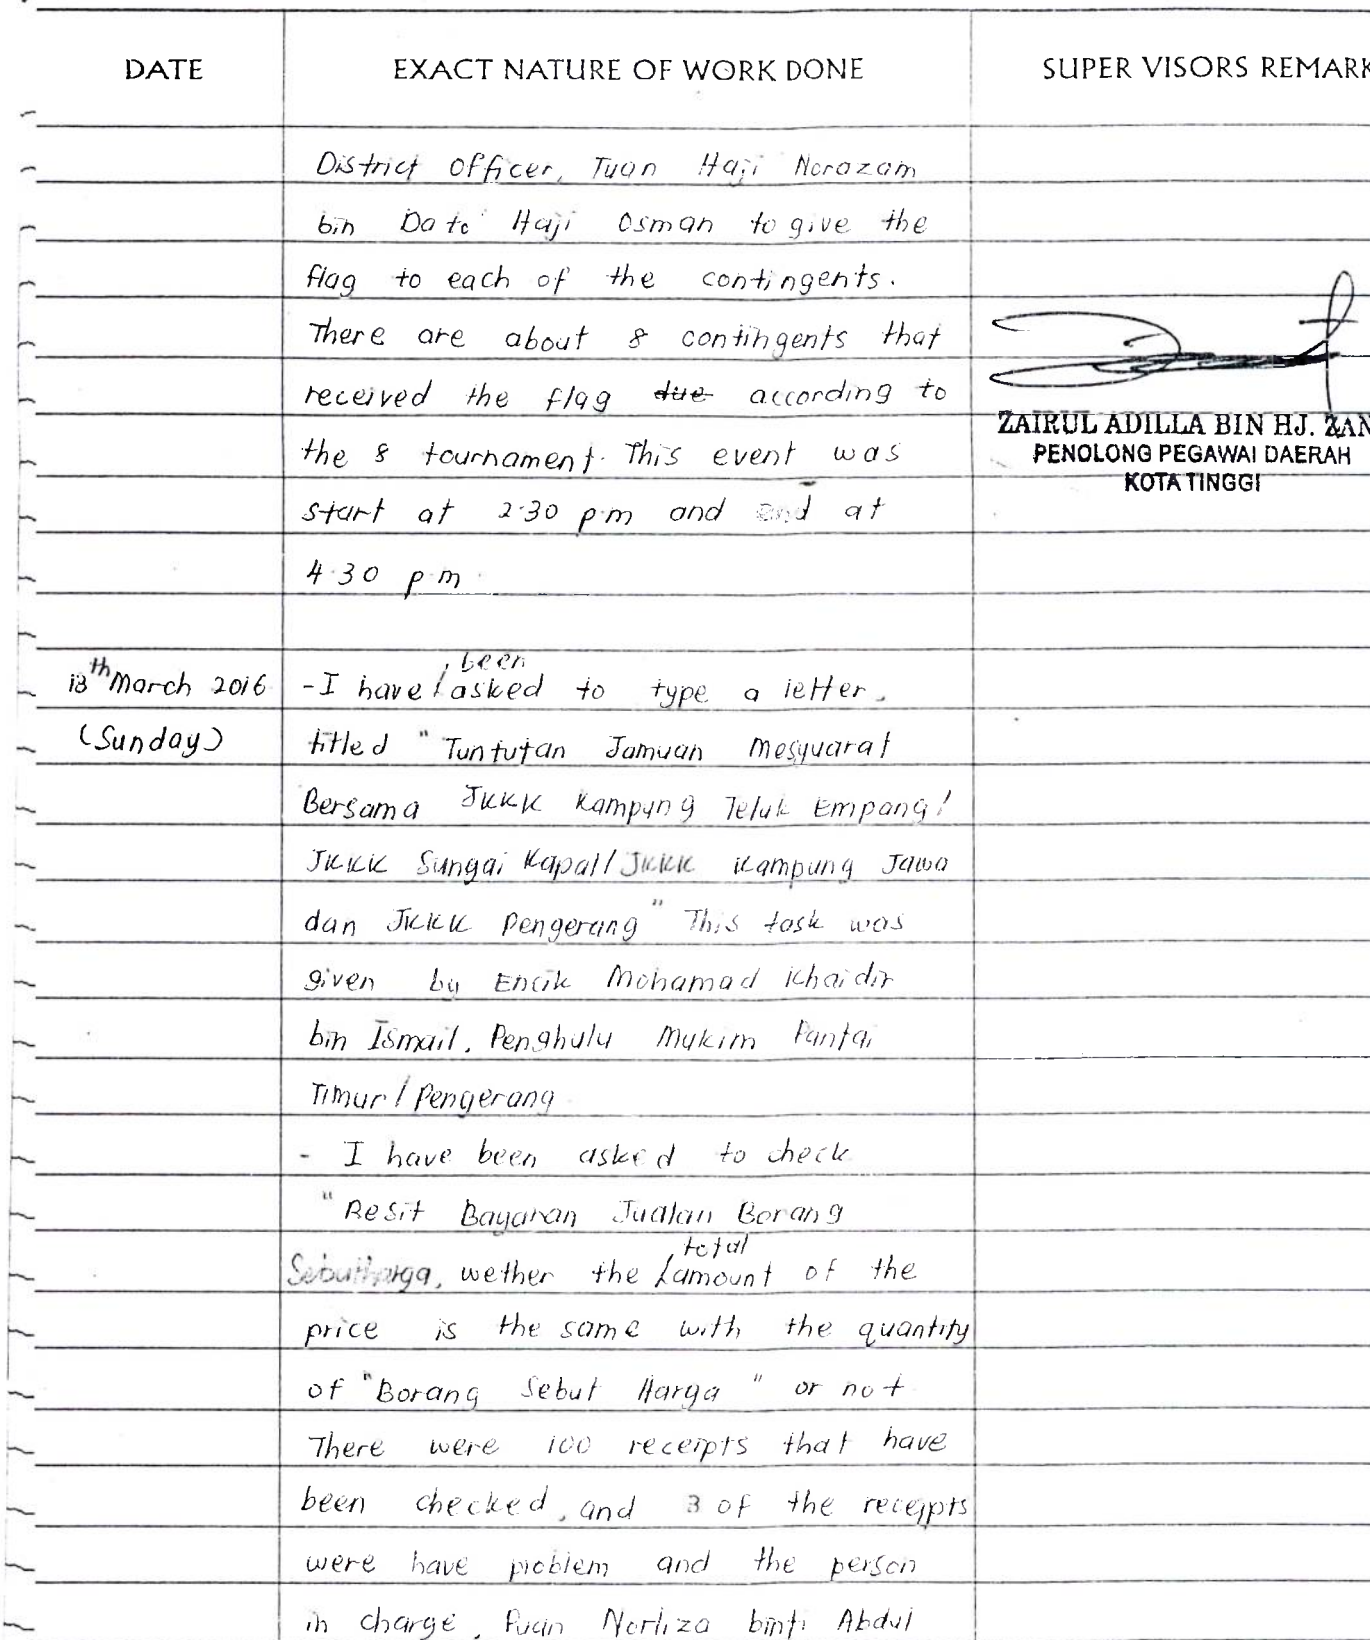 DATE EXACT NATURE OF WORK DONE SUPER VISORS REMARK
District Officer, Tuan Haji Norazam
bin Dato' Haji Osman to give the
flag to each of the contingents.
There are about 8 contingents that
received the flag due according to
the 8 tournament. This event was
start at 2.30 p.m and end at
4.30 p.m.
ZAIRUL ADILLA BIN HJ. ZAN
PENOLONG PEGAWAI DAERAH
KOTA TINGGI
13th March 2016 - I have been asked to type a letter,
(Sunday) titled "Tuntutan Jamuan Mesyuarat
Bersama JKKK Kampung Teluk Empang/
JKKK Sungai Kapal/JKKK Kampung Jawa
dan JKKK Pengerang" This task was
given by Encik Mohamad Khaidir
bin Ismail, Penghulu Mukim Pantai
Timur/Pengerang
- I have been asked to check
"Resit Bayaran Jualan Borang
Sebutharga, wether the total amount of the
price is the same with the quantity
of "Borang Sebut Harga" or not.
There were 100 receipts that have
been checked, and 3 of the receipts
were have problem and the person
in charge, Puan Norliza binti Abdul